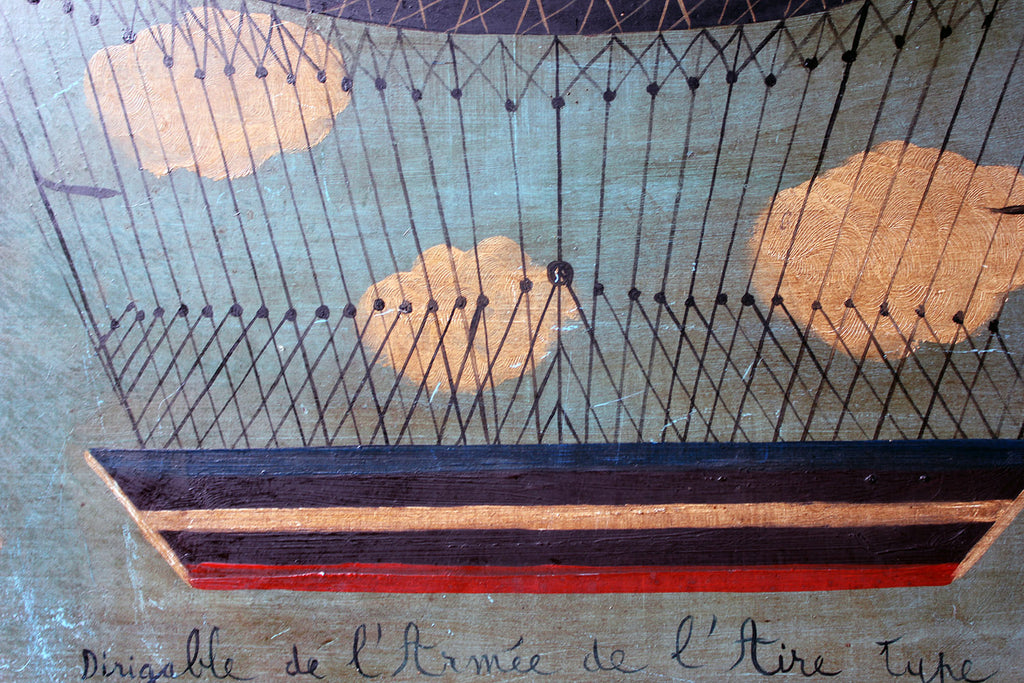 Dirigable de l'Armée de l'Aire Type